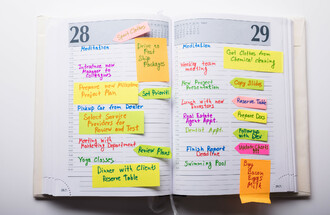 28
Meditation
Drive to
Post
Ship
Packages
Introduce new
Manager to
Colleagues
Prepare new Marketing
Project Plan
Set Priorities
Pickup Car from Dealer
Select Service
Providers for
Review and Test
Meeting with
Marketing Department
Review Plans
Yoga Classes
Dinner with Clients
Reserve Table
29
Meditation
Get Clothes from
Chemical Cleaning
Weekly team
meeting
New Project
Presentation
Copy Slides
Lunch with new
Investors
Reserve Table
Real Estate
Agent Appt.
Prepare Docs
Dentist Appt.
Followup
with Dev
Finish Report
Deadline
Update Charts
Swimming Pool
Buy
Bacon
Eggs
Milk